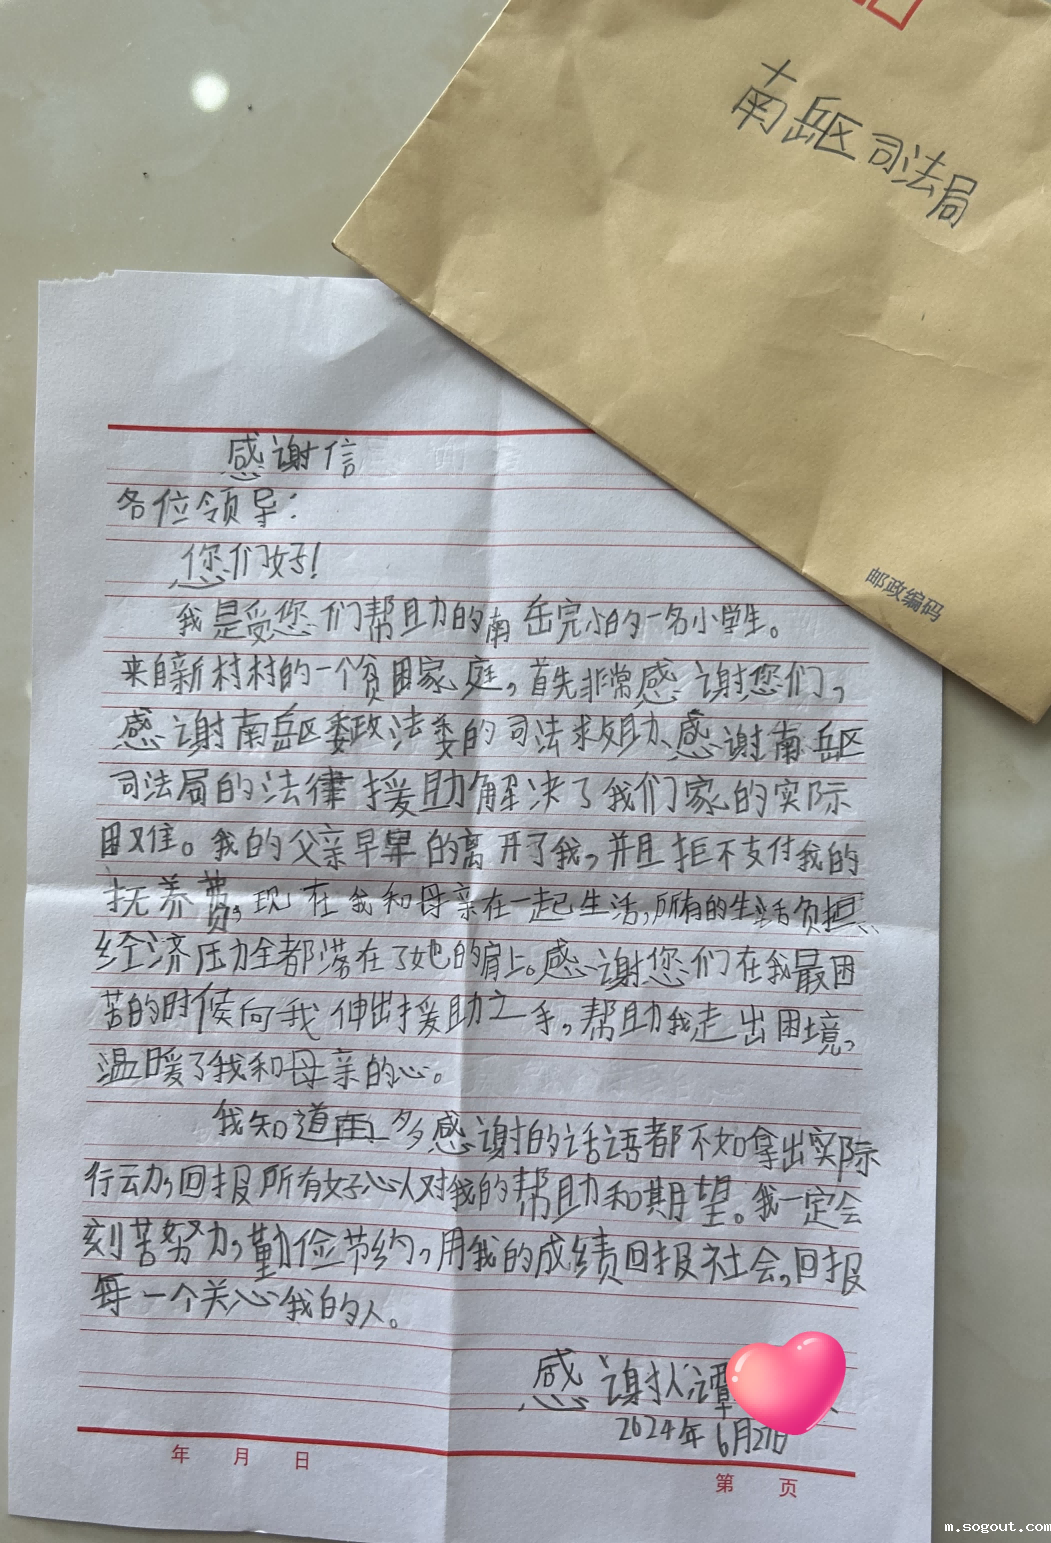 南岳区司法局
邮政编码
感谢信
各位领导：
您们好！
我是受您们帮助的南岳完小的一名小学生。
来自新村村的一个贫困家庭，首先非常感谢您们，
感谢南岳区委政法委的司法救助、感谢南岳区
司法局的法律援助解决了我们家的实际
困难。我的父亲早早的离开了我，并且拒不支付我的
抚养费，现在我和母亲在一起生活，所有的生活负担、
经济压力全都落在了她的肩上。感谢您们在我最困
苦的时候向我伸出援助之手，帮助我走出困境，
温暖了我和母亲的心。
我知道再多感谢的话语都不如拿出实际
行动，回报所有好心人对我的帮助和期望。我一定会
刻苦努力，勤俭节约，用我的成绩回报社会，回报
每一个关心我的人。
感谢人：谭
2024年6月27日
年 月 日
第 页
m.sogout.com